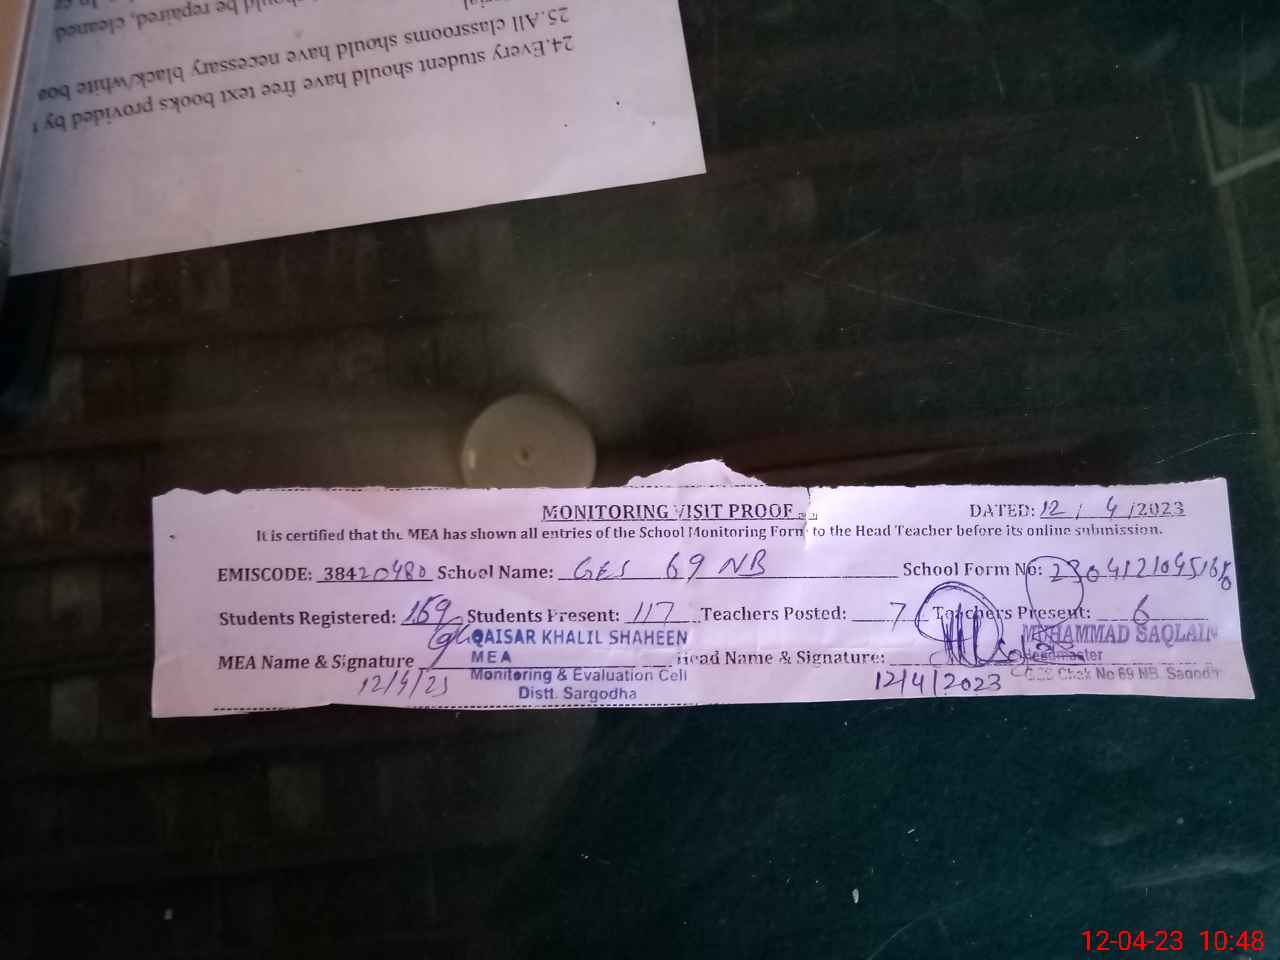 24.Every student should have free text books provided by
25.All classrooms should have necessary black/white boa
should be repaired, cleaned
MONITORING VISIT PROOF
DATED: 12 / 4 /2023
It is certified that the MEA has shown all entries of the School Monitoring Form to the Head Teacher before its online submission.
EMISCODE: 38420480 School Name: GES 69 NB School Form No:
Students Registered: 159 Students Present: 117 Teachers Posted: 7 Teachers Present: 6
QAISAR KHALIL SHAHEEN
MUHAMMAD SAQLAIN
MEA Name & Signature MEA Head Name & Signature: Headmaster
12/4/23 Monitoring & Evaluation Cell 12/4/2023 GES Chak No 69 NB. Sagodh
Distt. Sargodha
12-04-23 10:48